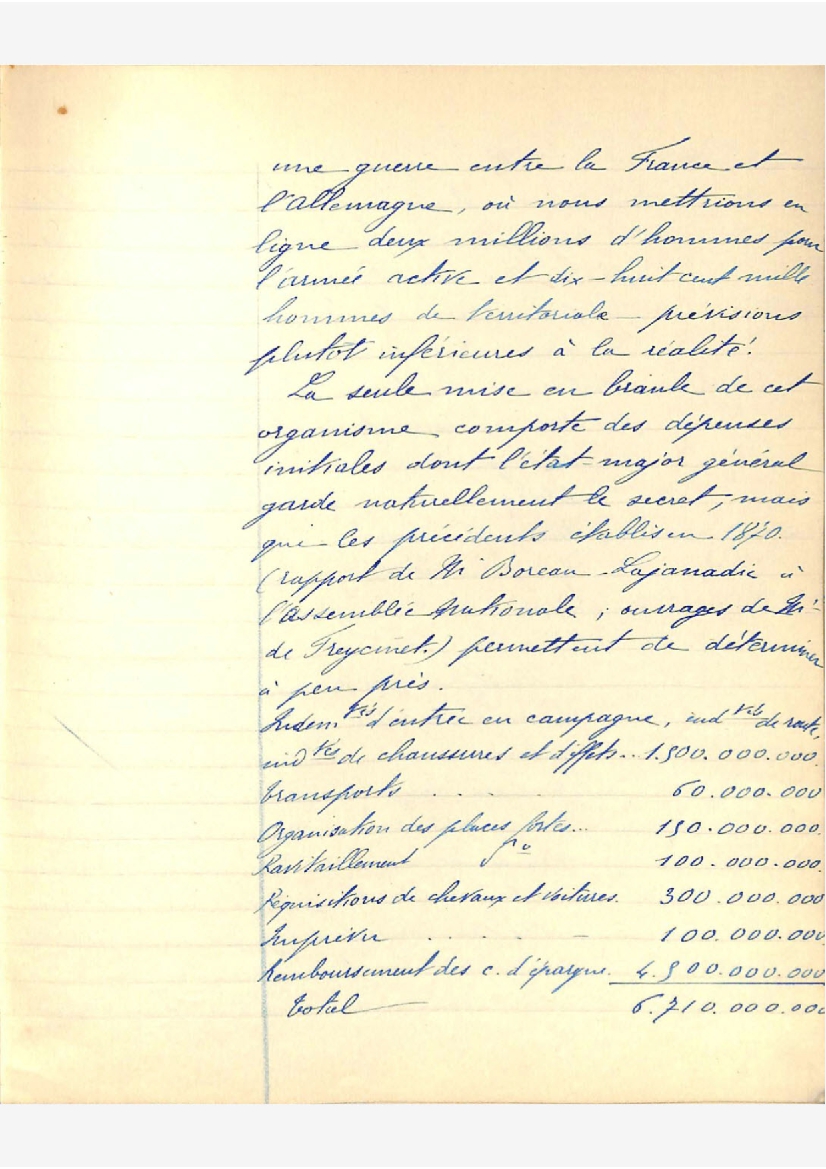 une guerre entre la France et
l'Allemagne, où nous mettrions en
ligne deux millions d'hommes pour
l'armée active et dix-huit cent mille
hommes de territoriale – prévisions
plutot inférieures à la réalité.
La seule mise en branle de cet
organisme comporte des dépenses
initiales dont l'état-major général
garde naturellement le secret, mais
que les précédents établis en 1870.
(rapport de Mr Boreau-Lajanadie à
l'Assemblée Nationale ; ouvrages de Mr
de Freycinet.) permettent de déterminer
à peu près.
Indem tés d'entrée en campagne, ind tés de route,
ind tés de chaussures et d'effets.. 1.500.000.000.
Transports . . . . 60.000.000
Organisation des places fortes... 150.000.000.
Ravitaillement do 100.000.000.
Réquisitions de chevaux et voitures. 300.000.000
Imprévu . . . – 100.000.000
Remboursement des c. d'épargne. 4.500.000.000
Total 6.710.000.000